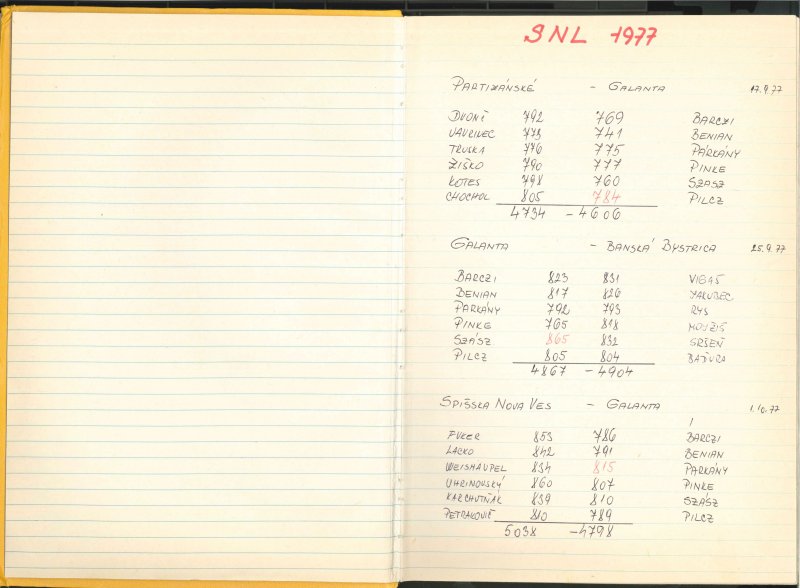 SNL 1977
PARTIZÁNSKÉ – GALANTA 17.9.77
DVONČ 792 769 BARCZI
VAVRINEC 773 741 BENIAN
TRUSKA 776 775 PÁRKÁNY
ŽIŠKO 790 777 PINKE
KOTES 798 760 SZÁSZ
CHOCHOL 805 784 PILCZ
4734 – 4606
GALANTA – BANSKÁ BYSTRICA 25.9.77
BARCZI 823 831
BENIAN 817 826 JAKUBEC
PARKÁNY 792 793 RYS
PINKE 765 818
SZÁSZ 865 832 SRŠEŇ
PILCZ 805 804 BAŤURA
4867 – 4904
SPIŠSKA NOVA VES – GALANTA 1.10.77
FUKER 853 786 BARCZI
LACKO 842 791 BENIAN
WEISHAUPEL 834 815 PARKÁNY
UHRINOVSKÝ 860 807 PINKE
KARCHUTŇÁK 839 810 SZÁSZ
PETRAKOVIČ 810 789 PILCZ
5038 – 4798